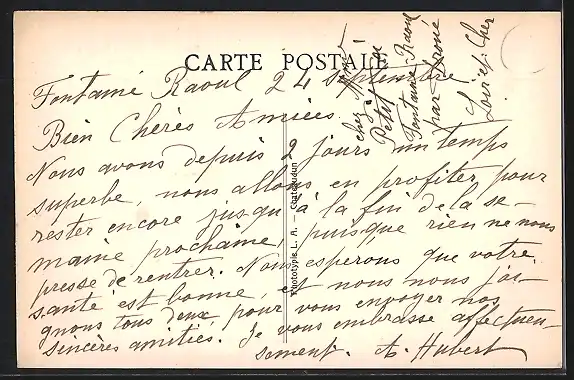 CARTE POSTALE
Fontaine Raoul 24 Septembre
Bien Chères Amiées.
Nous avons depuis 2 jours un temps
superbe, nous allons en profiter pour
rester encore jusqu'à la fin de la se-
maine prochaine, puisque rien ne nous
presse de rentrer. Nous esperons que votre
santé est bonne, et nous nous joi-
gnons tous deux pour vous envoyer nos
sincères amitiés. Je vous embrasse affectueu-
sement. A. Hubert
chez
Petit
Fontaine Raoul
par Droué
Loir et Cher
Phototypie L. A. - Chateaudun